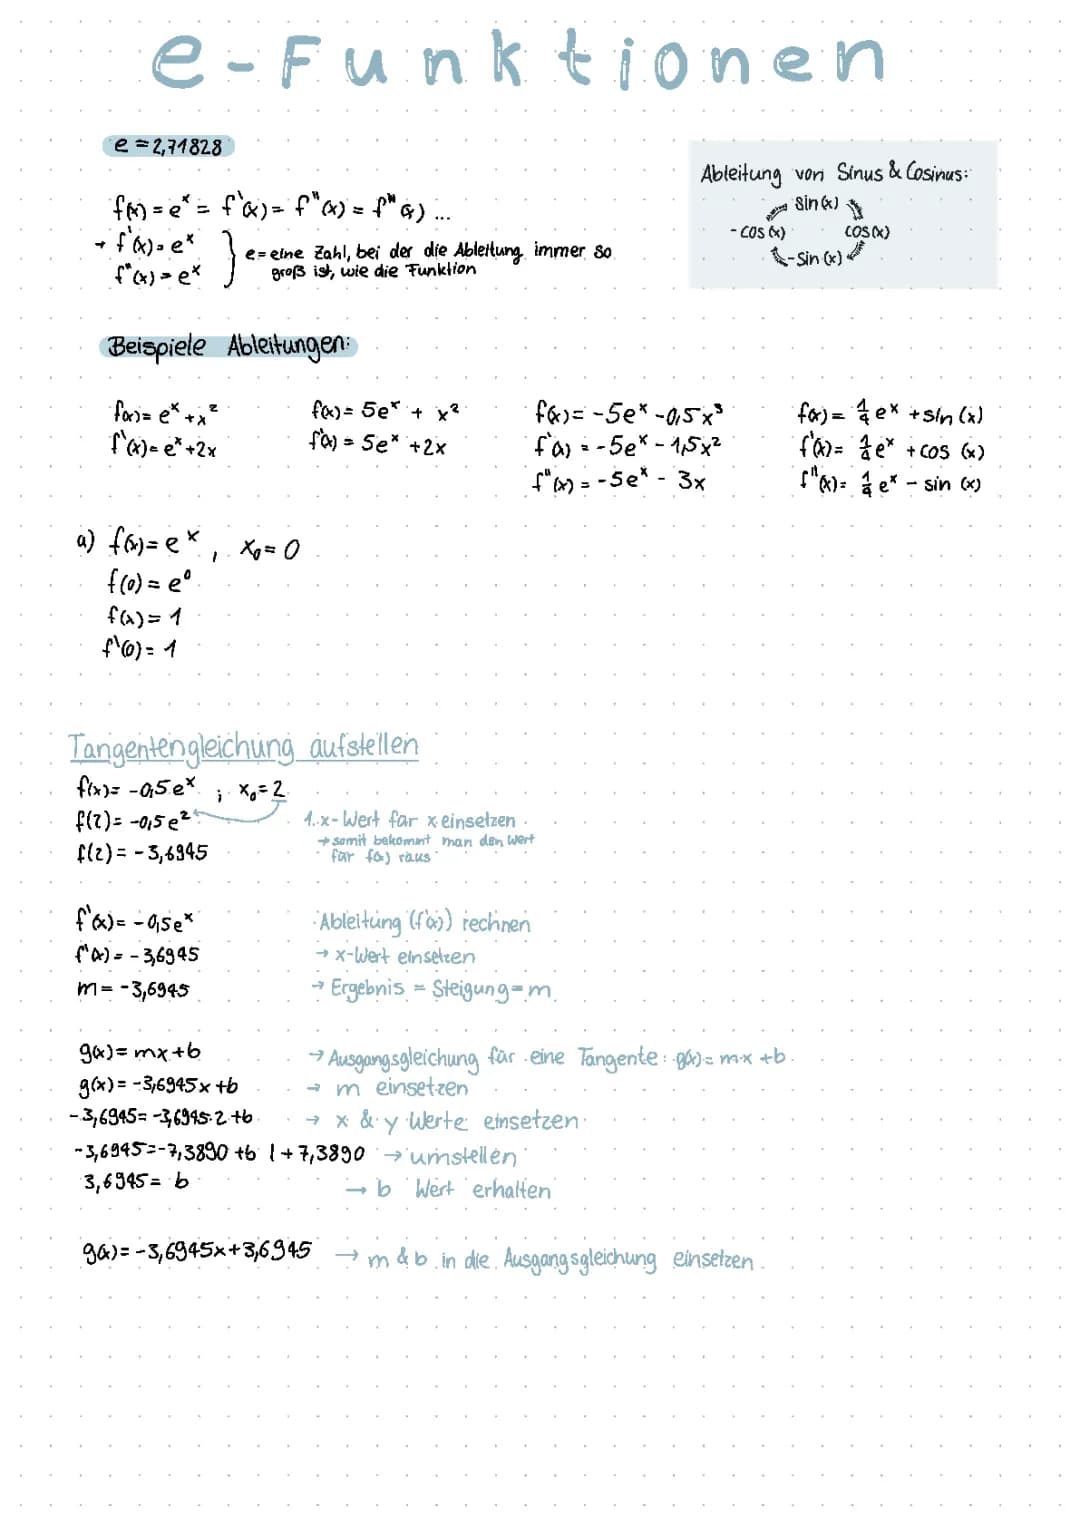 e-Funktionen
e = 2,71828
Ableitung von Sinus & Cosinus:
sin(x)
-cos(x) cos(x)
-sin(x)
f(x) = e^x = f'(x) = f''(x) = f'''(x) ...
→ f'(x) = e^x
f''(x) = e^x
e = eine Zahl, bei der die Ableitung immer so
groß ist, wie die Funktion
Beispiele Ableitungen:
f(x) = e^x + x²
f'(x) = e^x + 2x
f(x) = 5e^x + x²
f'(x) = 5e^x + 2x
f(x) = -5e^x - 0,5x³
f'(x) = -5e^x - 1,5x²
f''(x) = -5e^x - 3x
f(x) = 1/4 e^x + sin(x)
f'(x) = 1/4 e^x + cos(x)
f''(x) = 1/4 e^x - sin(x)
a) f(x) = e^x , x₀ = 0
f(0) = e⁰
f(x) = 1
f'(0) = 1
Tangentengleichung aufstellen
f(x) = -0,5e^x ; x₀ = 2
f(2) = -0,5e² 1. x-Wert für x einsetzen
→ somit bekommt man den Wert
für f(x) raus
f(2) = -3,6945
f'(x) = -0,5e^x · Ableitung (f'(x)) rechnen
f'(x) = -3,6945 → x-Wert einsetzen
m = -3,6945 → Ergebnis = Steigung = m
g(x) = mx + b → Ausgangsgleichung für eine Tangente: g(x) = m·x + b
g(x) = -3,6945x + b → m einsetzen
-3,6945 = -3,6945·2 + b → x & y Werte einsetzen
-3,6945 = -7,3890 + b | + 7,3890 → umstellen
3,6945 = b → b Wert erhalten
g(x) = -3,6945x + 3,6945 → m & b in die Ausgangsgleichung einsetzen